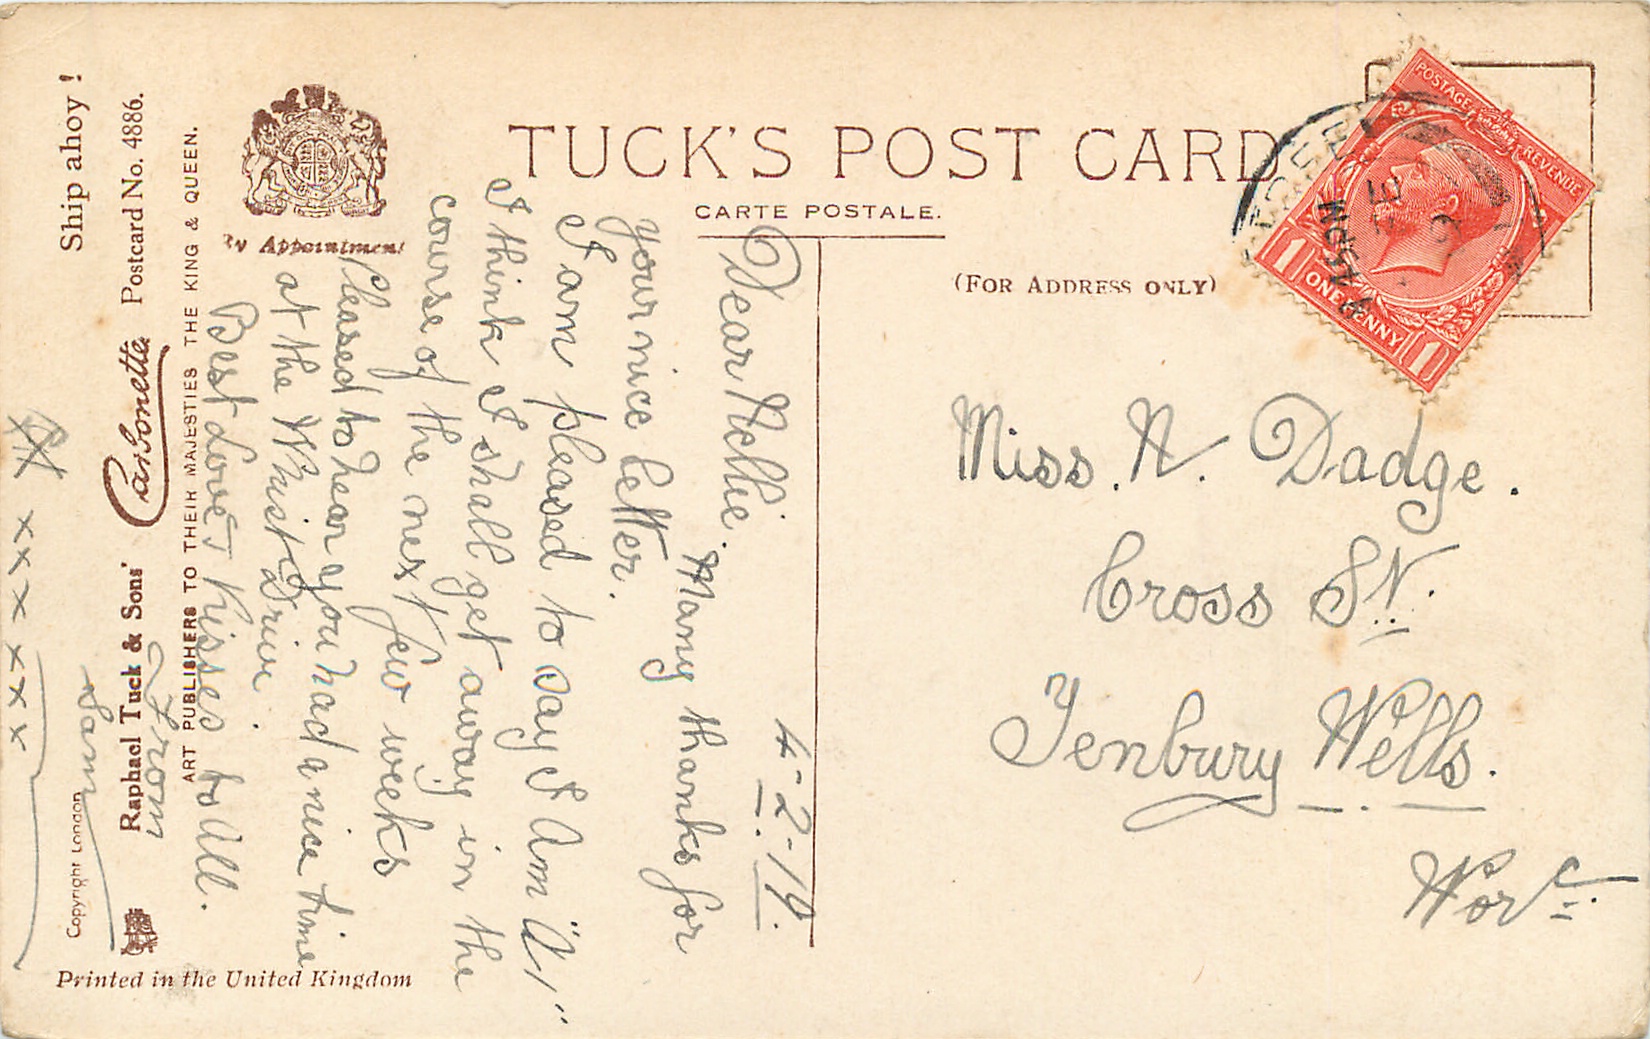 TUCK'S POST CARD
CARTE POSTALE.
(FOR ADDRESS ONLY)
By Appointment
Ship ahoy !
Raphael Tuck & Sons' Carbonette Postcard No. 4886.
ART PUBLISHERS TO THEIR MAJESTIES THE KING & QUEEN.
Copyright London
Printed in the United Kingdom
POSTAGE REVENUE
1 ONE PENNY 1
4-2-19.
Dear Nellie.
Many thanks for
your nice letter.
I am pleased to say I Am "A1"
I think I shall get away in the
course of the next few weeks
Pleased to hear you had a nice time
at the Whist Drive.
Best Love & Kisses to All.
From
Sam
x x x x x x
Miss. N. Dadge.
Cross St.
Tenbury Wells.
Worc.